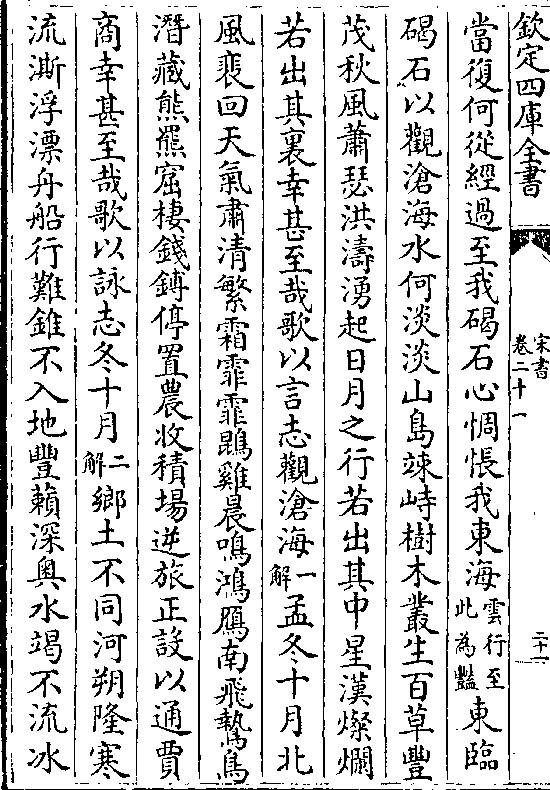 欽定四庫全書
宋書
卷二十一
二十一
當復何從經過至我碣石心惆悵我東海雲行至此為豔東臨
碣石以觀滄海水何淡淡山島竦峙樹木叢生百草豐
茂秋風蕭瑟洪濤湧起日月之行若出其中星漢燦爛
若出其裏幸甚至哉歌以言志觀滄海一解孟冬十月北
風裴回天氣肅清繁霜霏霏鵾雞晨鳴鴻鴈南飛鷙鳥
潛藏熊羆窟棲錢鎛停置農收積場逆旅正設以通賈
商幸甚至哉歌以詠志冬十月二解鄉土不同河朔隆寒
流澌浮漂舟船行難錐不入地豐藾深奥水竭不流冰